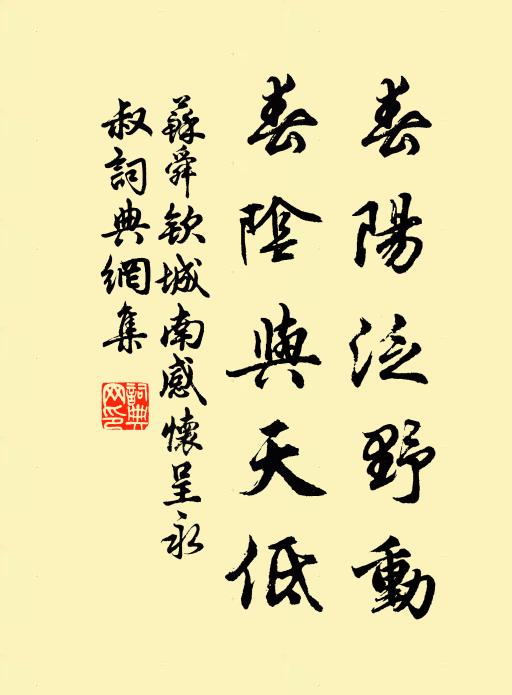 春陽泛野動
春陰與天低
蘇舜欽城南感懷呈永
叔詞典網集
詞典
网印